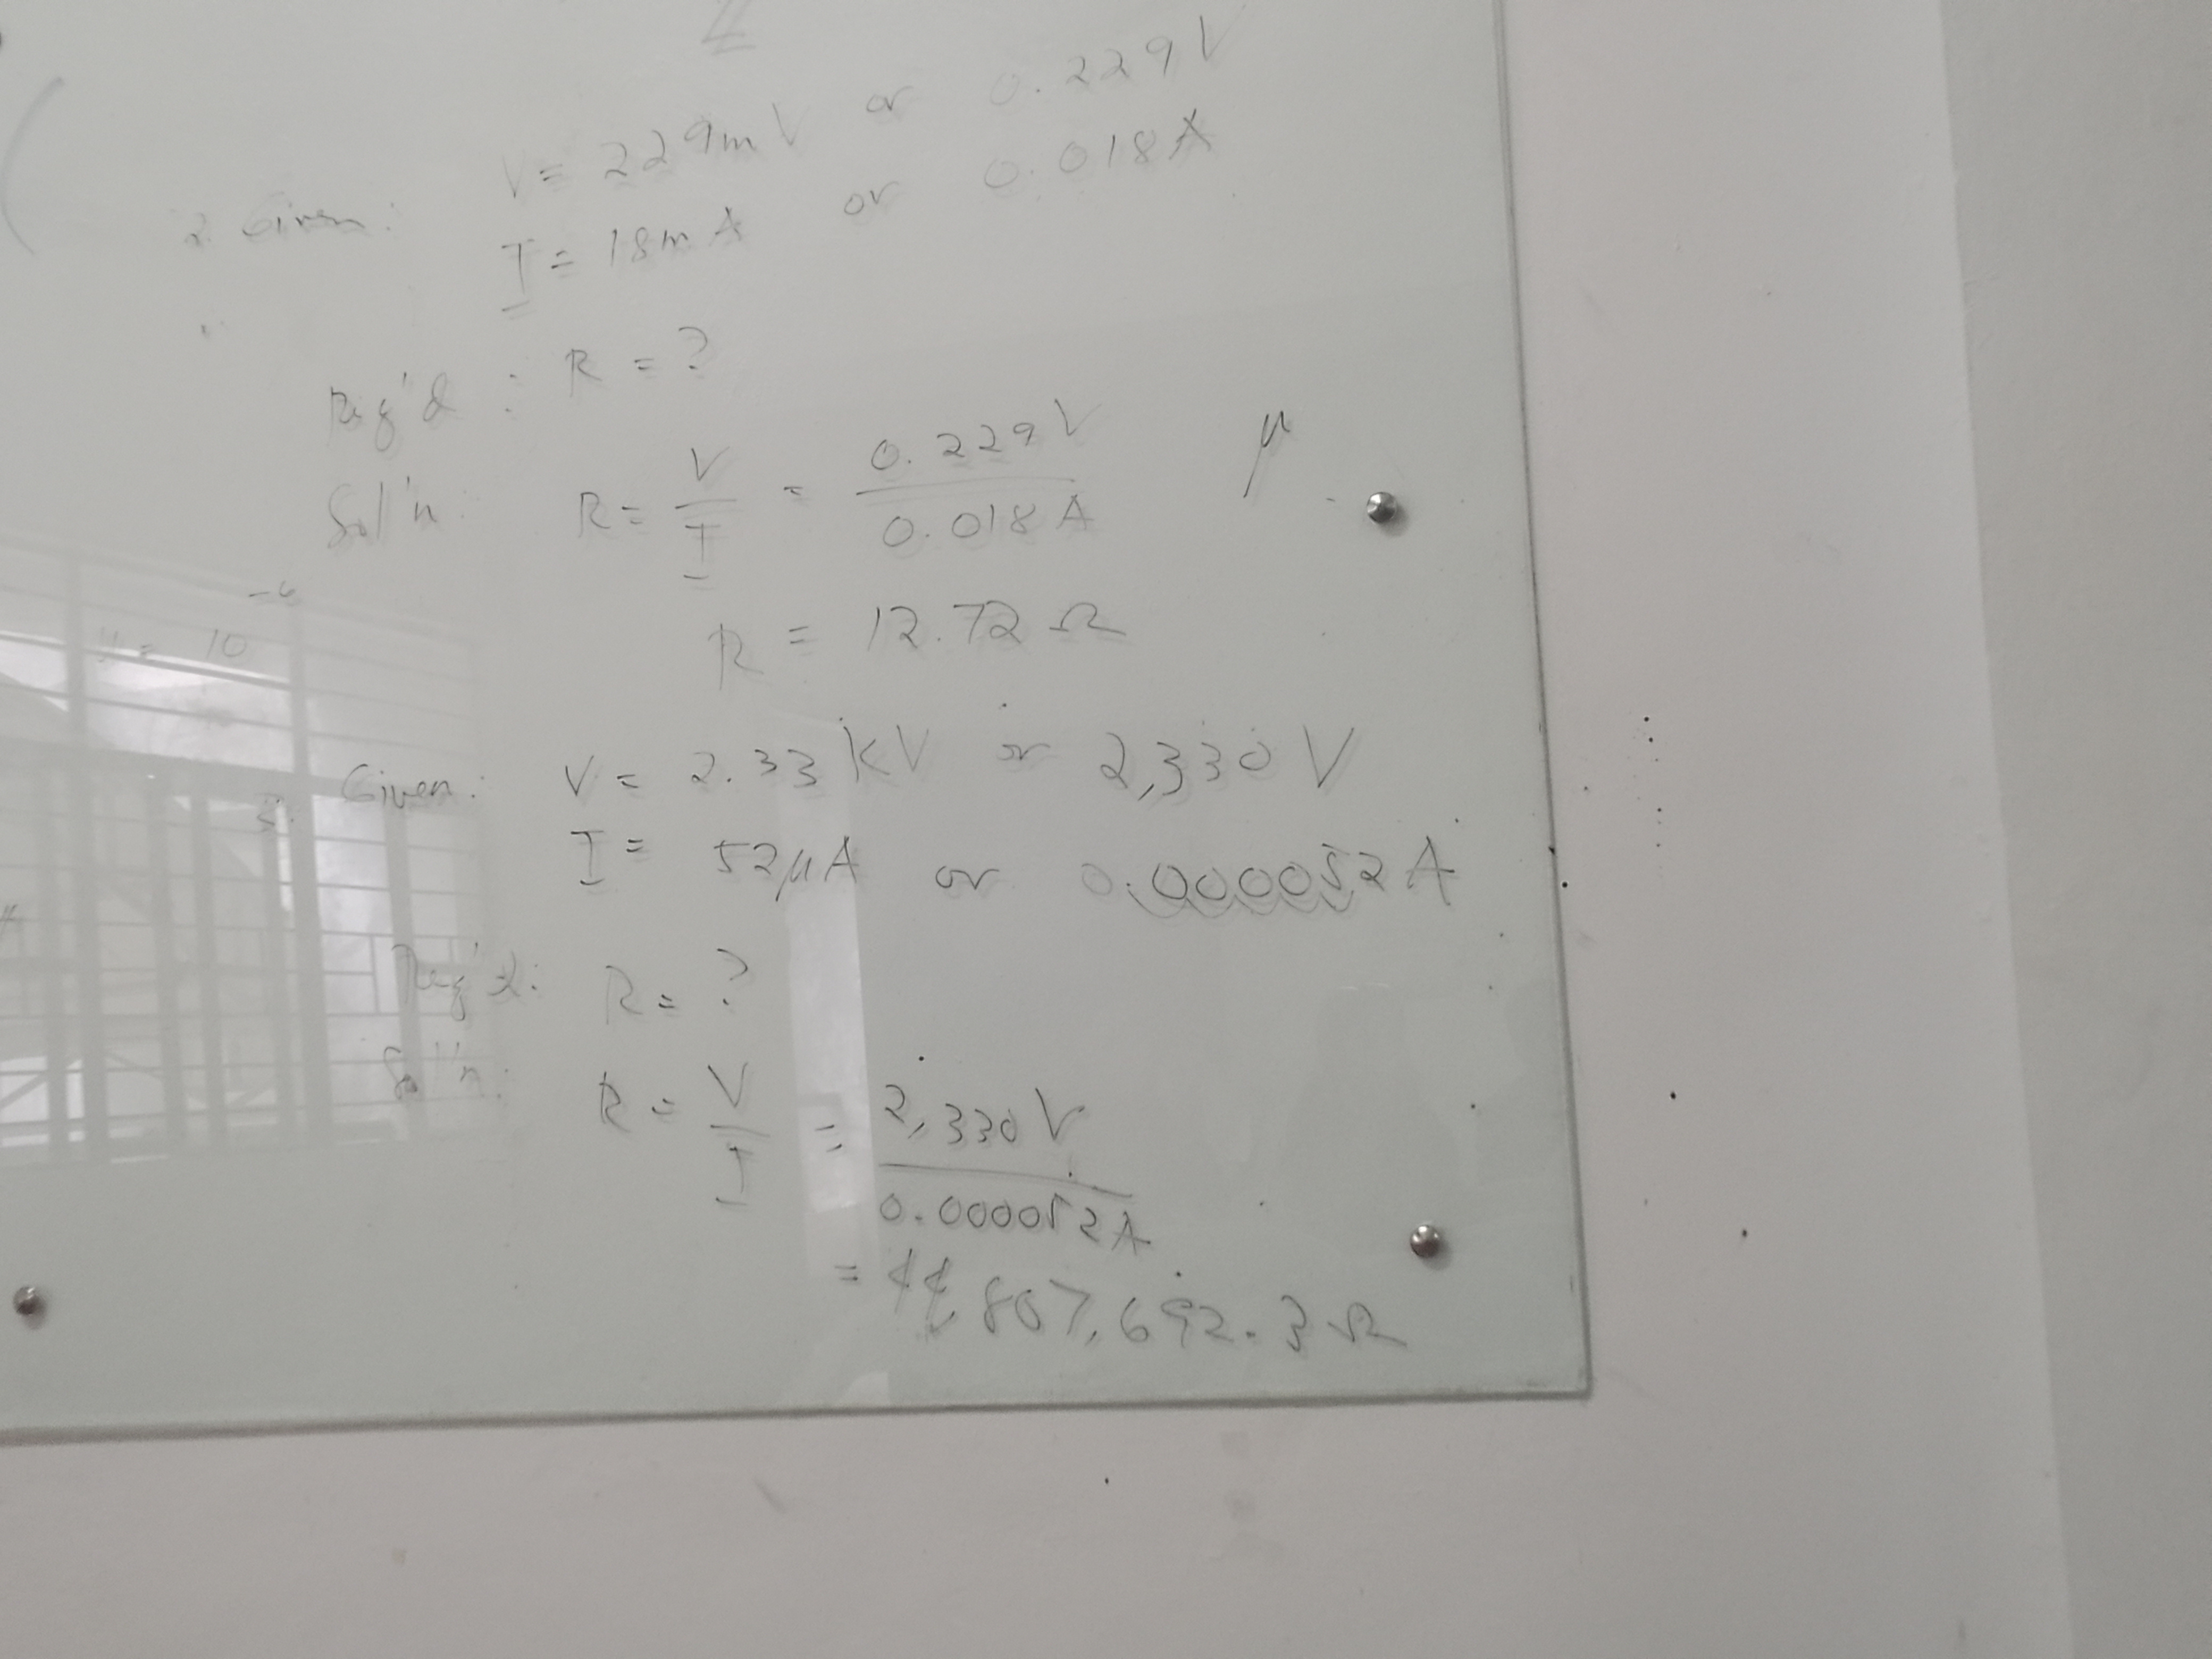 V = 229mV or 0.229V
2. Given:
I = 18mA or 0.018A
Req'd : R = ?
Sol'n: R = V/I = 0.229V/0.018A
μ
R = 12.72 Ω
μ = 10^-6
3. Given: V = 2.33 kV or 2,330 V
I = 52μA or 0.000052 A
Req'd: R = ?
Sol'n: R = V/I = 2,330V/0.000052A
= 44,807,692.3 Ω